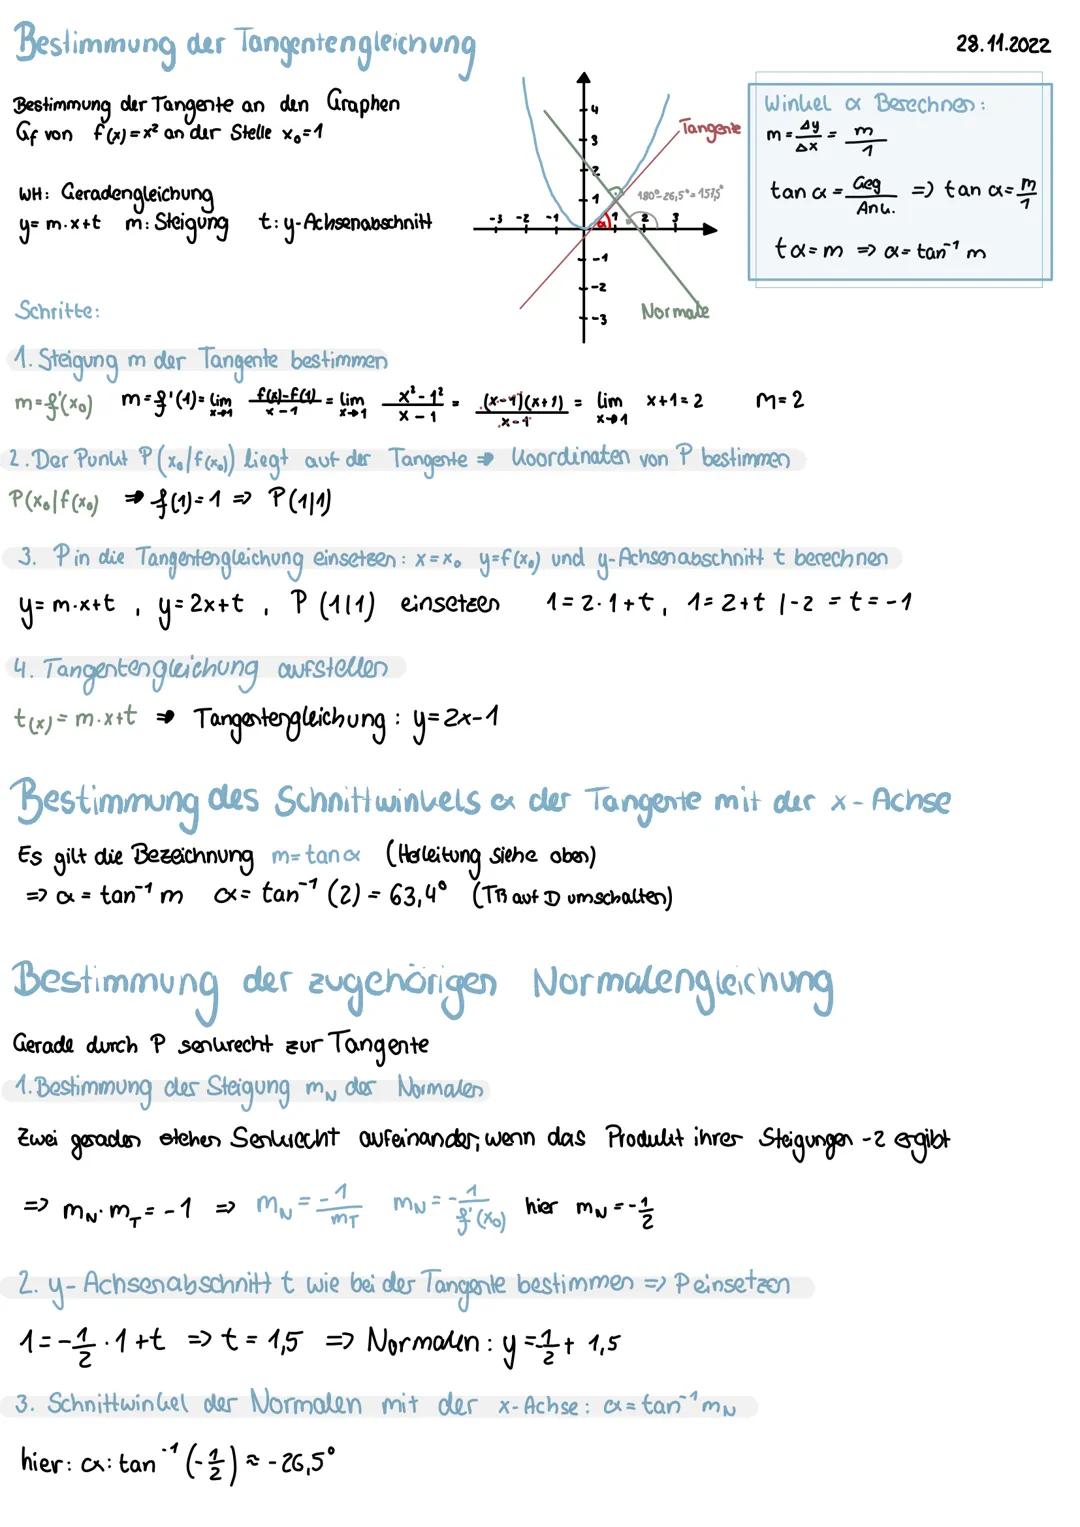 Bestimmung der Tangentengleichung
28.11.2022
Bestimmung der Tangente an den Graphen
Gf von f(x)=x² an der Stelle x₀=1
WH: Geradengleichung
y= m·x+t m: Steigung t: y-Achsenabschnitt
4
3
2
1
-3 -2 -1 1 2 3
-1
-2
-3
α
Tangente
180°-26,5°=157,5°
Normale
Winkel α Berechnen:
m = Δy/Δx = m/1
tan α = Geg/Ank. => tan α = m/1
tα = m => α = tan⁻¹ m
Schritte:
1. Steigung m der Tangente bestimmen
m=f'(x₀) m=f'(1)= lim x→1 f(x)-f(1)/x-1 = lim x→1 x²-1²/x-1 = (x-1)(x+1)/x-1 = lim x→1 x+1=2 m=2
2. Der Punkt P(x₀|f(x₀)) liegt auf der Tangente → Koordinaten von P bestimmen
P(x₀|f(x₀) → f(1)=1 => P(1|1)
3. P in die Tangentengleichung einsetzen: x=x₀ y=f(x₀) und y-Achsenabschnitt t berechnen
y= m·x+t, y=2x+t, P(1|1) einsetzen 1=2·1+t, 1=2+t |-2 = t=-1
4. Tangentengleichung aufstellen
t(x)= m·x+t → Tangentengleichung: y=2x-1
Bestimmung des Schnittwinkels α der Tangente mit der x-Achse
Es gilt die Bezeichnung m=tanα (Herleitung siehe oben)
=> α = tan⁻¹ m α= tan⁻¹ (2) = 63,4° (TR auf D umschalten)
Bestimmung der zugehörigen Normalengleichung
Gerade durch P senkrecht zur Tangente
1. Bestimmung der Steigung mN der Normalen
Zwei geraden stehen Senkrecht aufeinander, wenn das Produkt ihrer Steigungen -2 ergibt
=> mN·mT = -1 => mN = -1/mT mN = -1/f'(x₀) hier mN = -1/2
2. y-Achsenabschnitt t wie bei der Tangente bestimmen => P einsetzen
1=-1/2·1+t => t=1,5 => Normalen: y=1/2+1,5
3. Schnittwinkel der Normalen mit der x-Achse: α=tan⁻¹ mN
hier: α: tan⁻¹ (-1/2) ≈ -26,5°